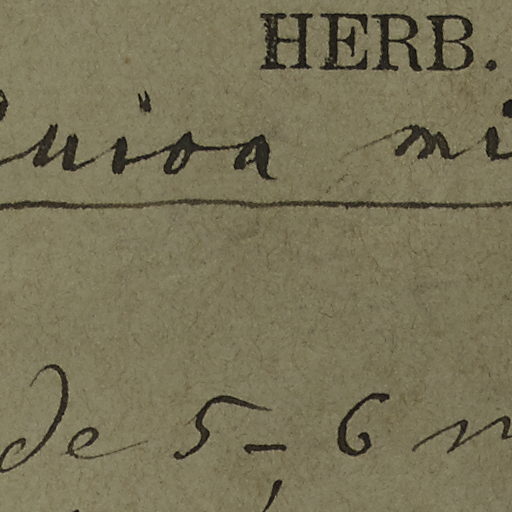 HERB.
Guioa mi
de 5-6 m